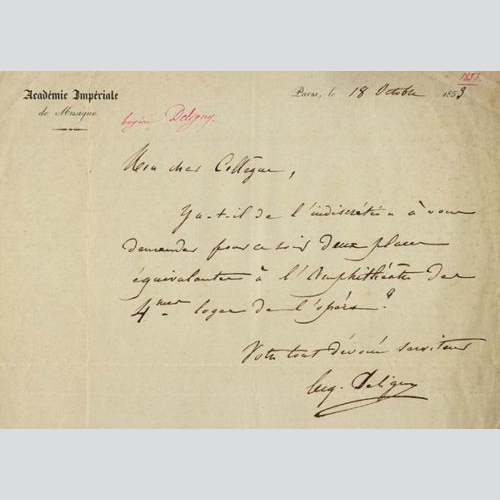 1853.
Académie Impériale
de Musique
Paris, le 18 Octobre 1853
Eugène Deligny.
Mon cher Collègue,
Ya-t-il de l'indiscrétion à vous
demander pour ce soir deux places
équivalentes à l'Amphithéâtre des
4mes loges de l'opéra ?
Votre tout dévoué serviteur
Eug. Deligny